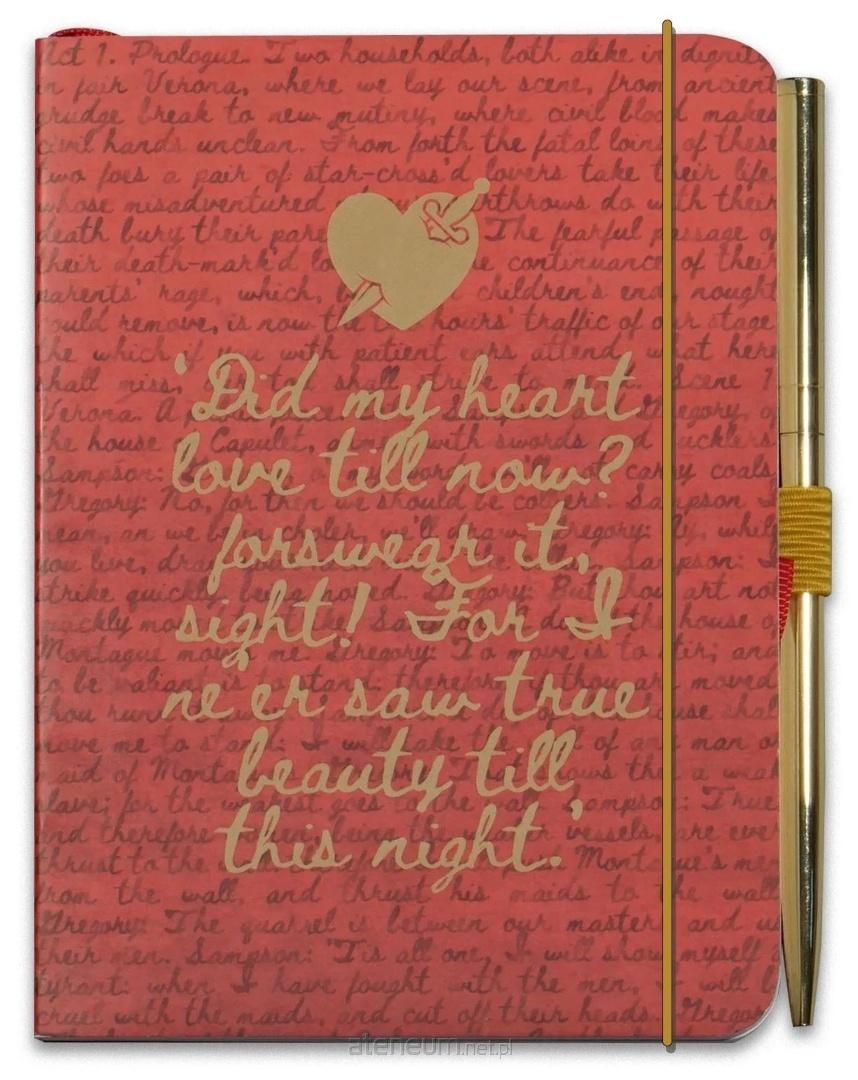 Act 1. Prologue. Two households, both alike in dignity
in fair Verona, where we lay our scene, from ancient
grudge break to new mutiny, where civil blood makes
civil hands unclean. From forth the fatal loins of these
two foes a pair of star-cross'd lovers take their life
whose misadventured rthrows do with their
death bury their pare The fearful passage of
their death-mark'd lo e continuance of their
parents' rage, which, children's end, nought
could remove, is now the hours' traffic of our stage
the which if you with patient ears attend, what here
shall miss, shall strive to Scene 1
'Did my heart
love till now?
forswear it,
sight! For I
ne'er saw true
beauty till
this night.'
Verona. A Gregory, of
the house Capulet, with swords and bucklers
Sampson: carry coals
Gregory: No, for then we should be colliers. Sampson I
mean, an we be in choler, we'll draw. Gregory: Ay, while
you live, Sampson: I
strike quickly, being moved. Gregory: But thou art not
quickly the house of
Montague moves me. Gregory: To move is to stir; and
to be valiant is to stand: therefore, thou art moved
thou shall
move me to stand: I will take the of any man or
maid of Monta That shows thee a weak
slave; for the weakest goes to the wall. Sampson: True
and therefore women, being the weaker vessels, are ever
thrust to the Montague's men
from the wall, and thrust his maids to the wall
Gregory: The quarrel is between our masters and us
their men. Sampson: 'Tis all one, I will show myself a
tyrant: when I have fought with the men, I will be
cruel with the maids, and cut off their heads. Gregor
ateneum.net.pl